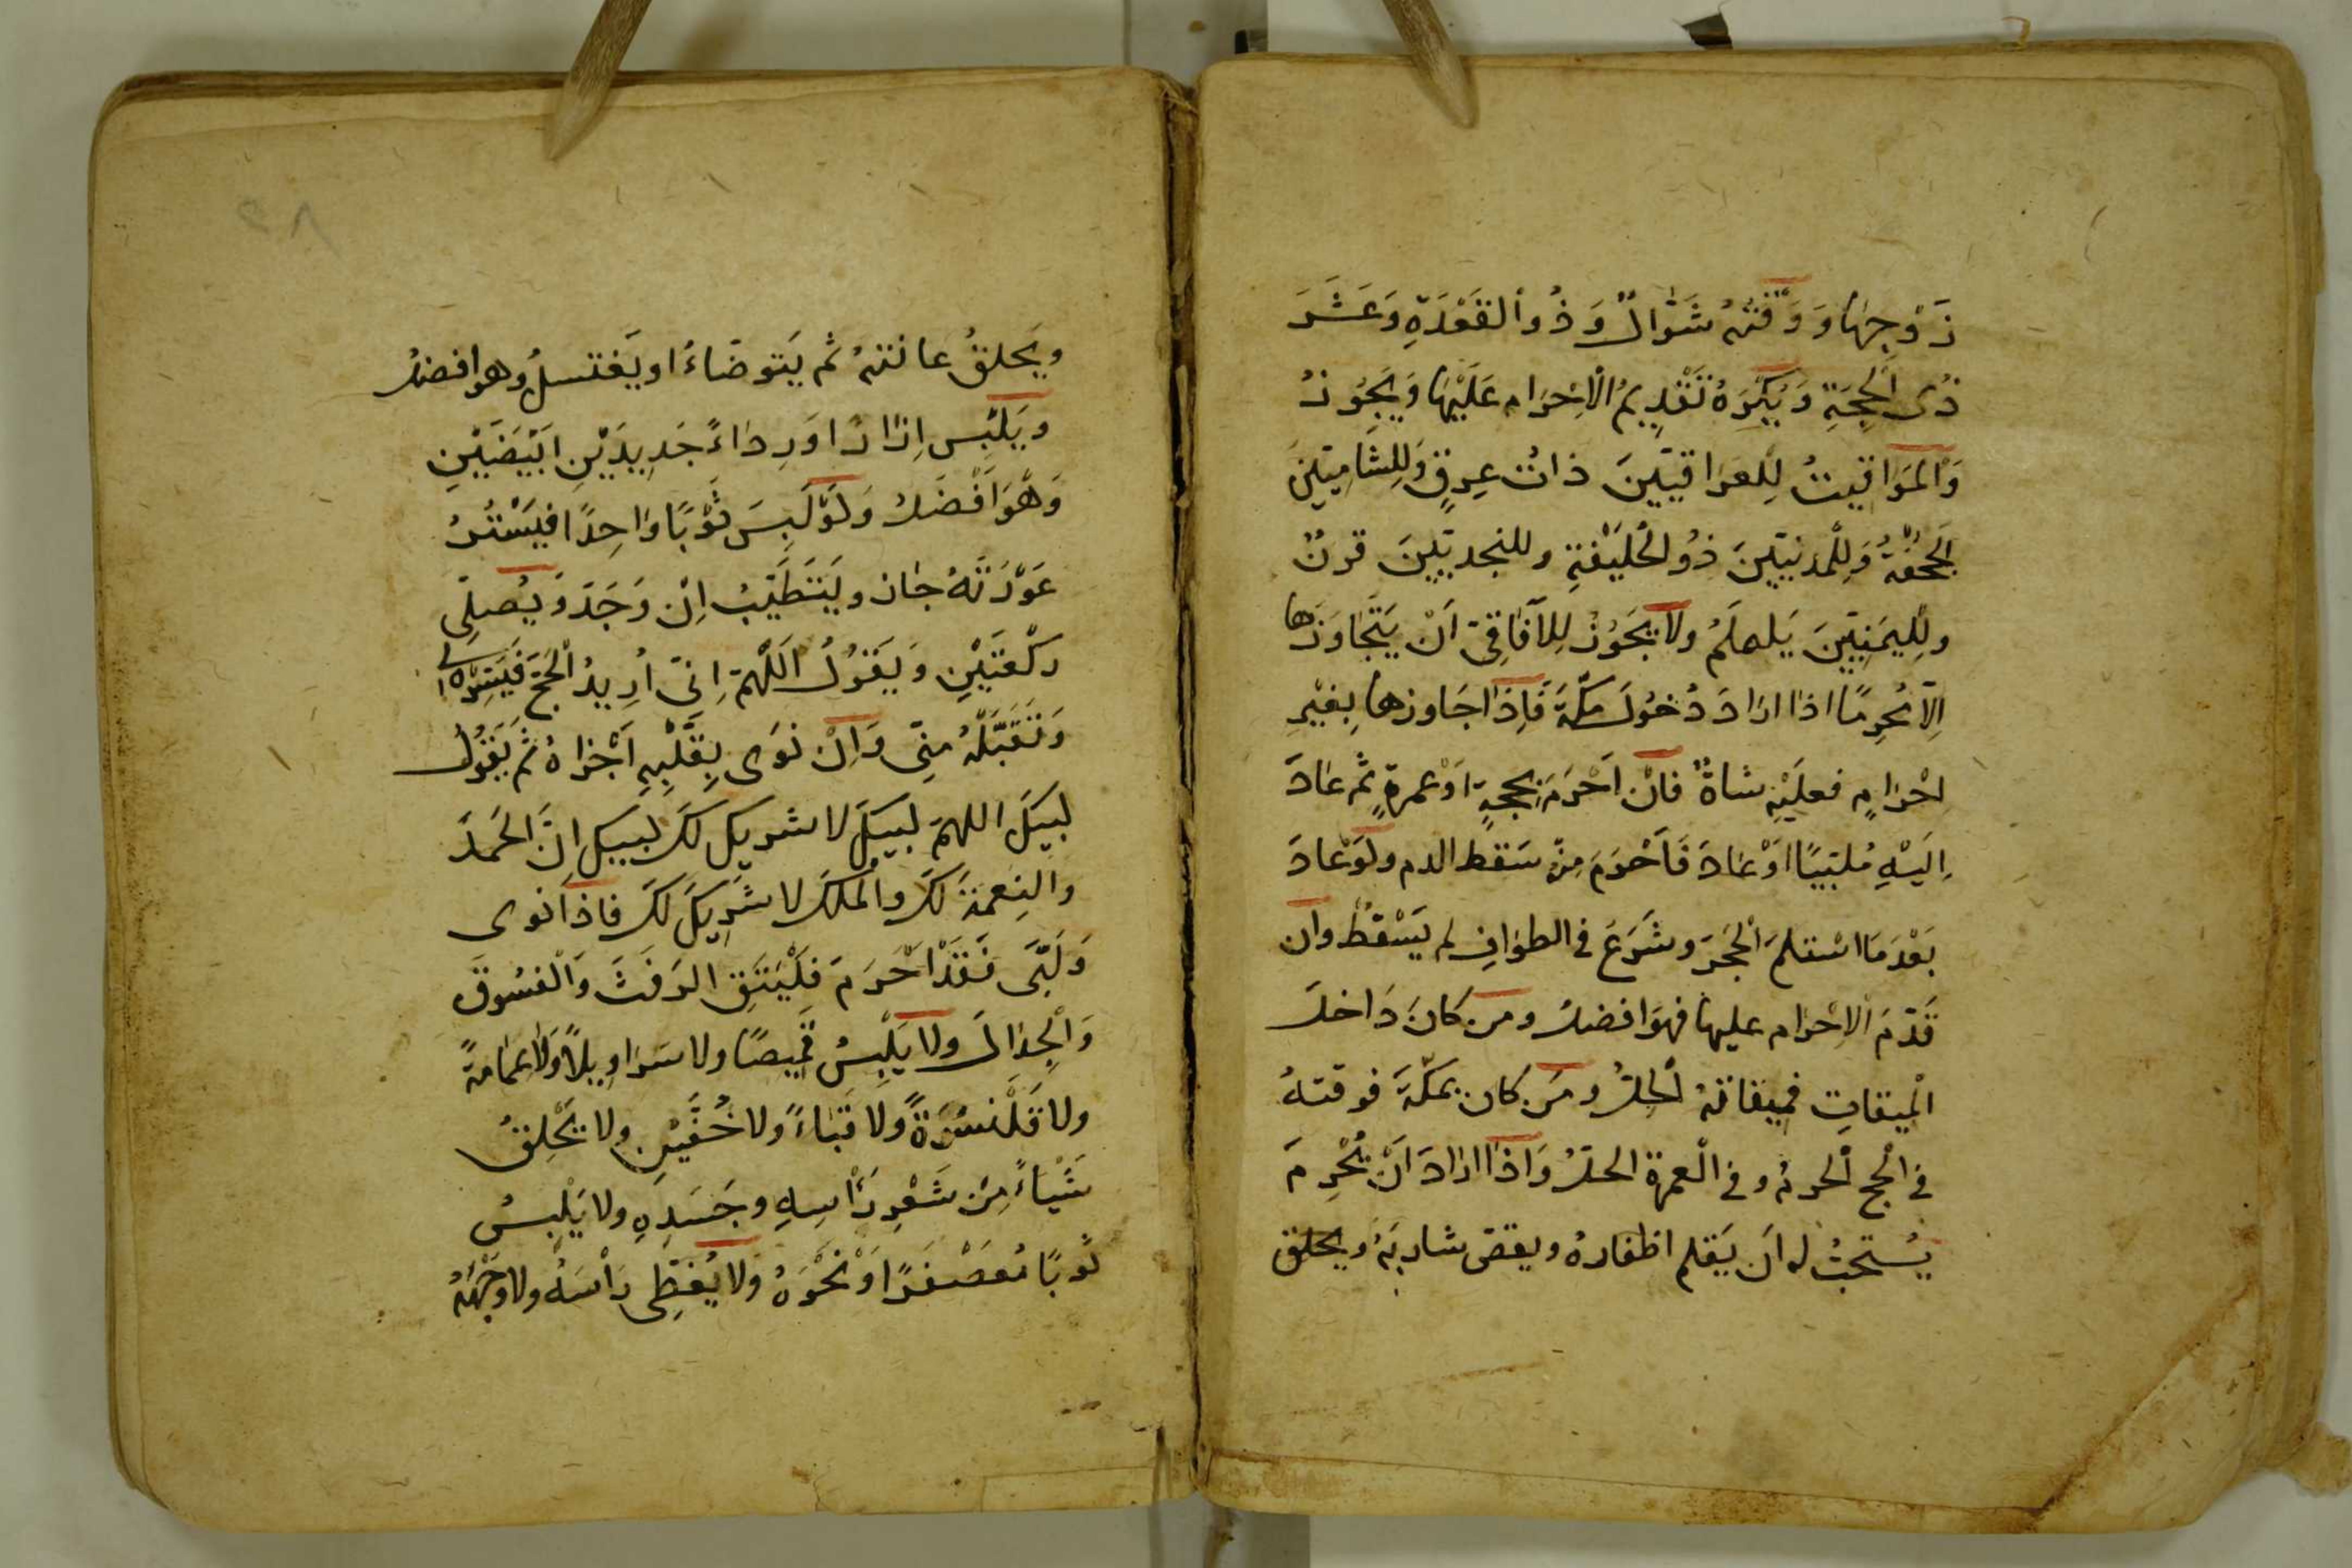 زَوْجِهَا وَوَقْتُهُ شَوَّالٌ وَذُو ٱلقَعْدَةِ وَعَشَرَ
ذُى الْحِجَّةِ وَيُكْرَهُ تَقْدِيمُ الْاِحْرَامِ عَلَيْهَا وَيَجُوزُ
وَالْمَوَاقِيتُ لِلْعِرَاقِيِّينَ ذَاتُ عِرقٍ وَلِلشامِيِّينَ
الْجُحْفَةُ وَلِلْمَدنِيِّينَ ذُو الْحُلَيْفَةِ وللنجديِّينَ قرنٌ
ولِلْيَمَنِيِّينَ يَلملَمُ ولا يَجُوزُ لِلآفَاقِيِّ اَنْ يَتَجَاوَزَهَا
اِلَّا مُحْرِمًا اذا ارَادَ دُخُولَ مَكَّةَ فَاِذَا جَاوزها بِغَيْرِ
احْرَامٍ فعلَيْهِ شاةٌ فانْ اَحْرَمَ بِحجةٍ اَوْ عمرةٍ ثم عَادَ
اِلَيْهِ مُلبِّيًا اَوْ عَادَ فَاَحْرَمَ مِنْهُ سَقط الدم ولَوْ عَادَ
بَعْدَ مَا اسْتلمَ الْحَجَرَ وشَرَعَ فى الطوَافِ لم يَسْقطْ وان
قَدَّمَ الاِحْرَام عليها فهوَ افضلُ ومن كانَ دَاخلَ
الْمِيقاتِ فميقاتهُ الْحِلُّ ومَن كان بمكّةَ فوقتهُ
فى الْحج الْحرمُ وفى الْعمرة الحلُّ وَاذَا ارَادَ اَنْ يُحْرِمَ
يُسْتحبُّ له اَن يَقلم اظفارهُ ويقصّ شاربَهُ ويحلق
ويَحلقُ عانتهُ ثم يَتوضّاءُ او يَغتسلُ وهو افضلُ
ويَلْبس اِزَارًا وَرِدَاءً جَدِيدَيْنِ اَبْيَضَيْنِ
وَهُوَ اَفْضَلُ وَلَوْ لَبِسَ ثَوْبًا وَاحِدًا فيَسْتُرُ
عَوْرَتَهُ جَازَ ويَتَطَيَّبُ اِنْ وَجَدَ وَيُصلِّى
ركْعَتَيْنِ وَيَقُولُ اَللّٰهُمَّ اِنِّى اُرِيدُ الْحَجَّ فَيَسِّرْهُ لى
وَتَقَبَّلْهُ مِنِّى وَاِنْ نوَى بِقَلْبِهِ اَجْزَاهُ ثم يَقُولُ
لبيكَ اللهمَّ لبيكَ لا شريكَ لكَ لبيك اِنَّ الحَمدَ
والنِعمَةَ لكَ والْملكَ لا شَرِيكَ لكَ فاذا نوى
وَلَبَّى فَقَدْ اَحْرَمَ فلْيَتَّقِ الرَفَثَ وَالْفسُوقَ
وَالْجِدَالَ ولا يَلْبسُ قَمِيصًا ولا سَرَاويلاً وَلا عمَامةً
ولا قَلَنْسُوَةً ولا قَبَاءً ولا خُفَّيْنِ ولا يَحْلِقُ
شَيْاءً مِن شَعْرِ رَاْسِهِ وجَسَدِهِ ولا يَلْبسُ
ثَوبًا مُعَصْفَرًا اَوْ نَحْوَهُ ولا يُغطِّى رَاْسَهُ ولا وَجْهَهُ